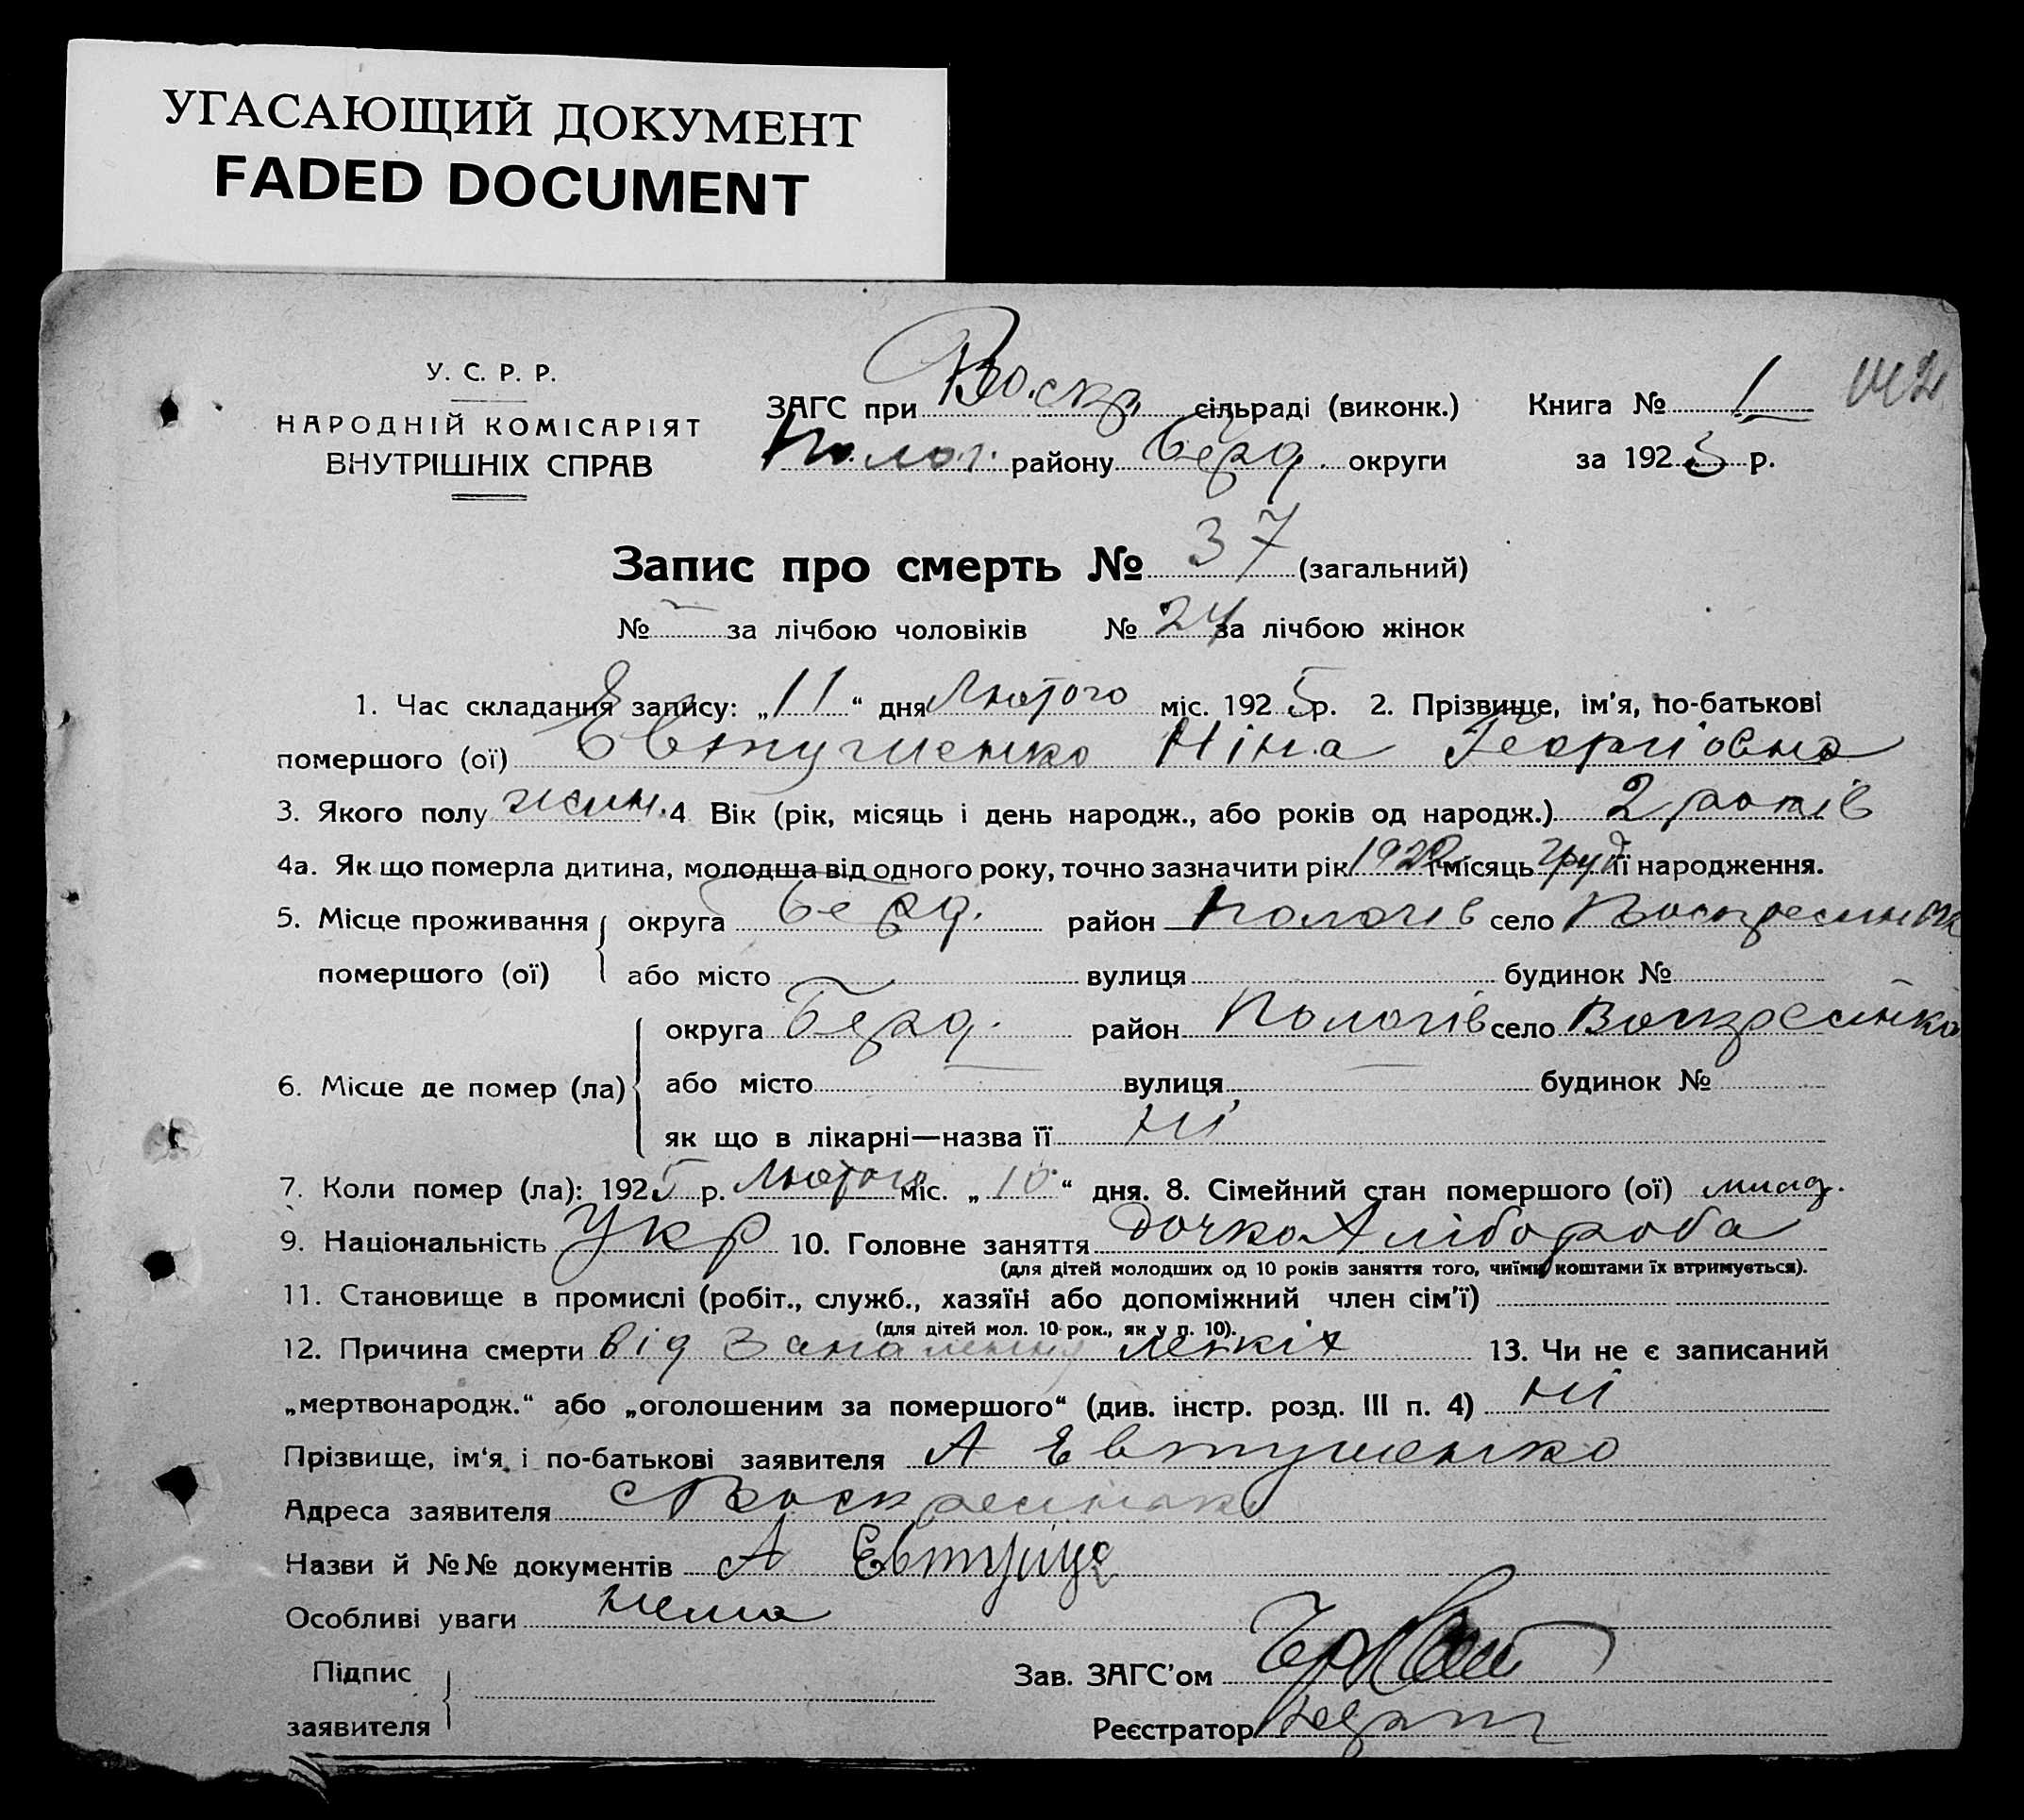 УГАСАЮЩИЙ ДОКУМЕНТ
FADED DOCUMENT
У. С. Р. Р.
НАРОДНІЙ КОМІСАРІЯТ
ВНУТРІШНІХ СПРАВ
ЗАГС при Воскр. сільраді (виконк.)
Полог. району Берд. округи
Книга № 1
за 1925 р.
Запис про смерть № 37 (загальний)
№ – за лічбою чоловіків № 24 за лічбою жінок
1. Час складання запису: „11“ дня Лютого міс. 1925 р. 2. Прізвище, ім'я, по-батькові
помершого (ої) Евтушенко Ніна Георгіовна
3. Якого полу жин. 4 Вік (рік, місяць і день народж., або років од народж.) 2 років
4а. Як що померла дитина, молодша від одного року, точно зазначити рік 1922 і місяць груд її народження.
5. Місце проживання помершого (ої) округа Берд. район Пологів село Воскресинка
або місто вулиця будинок №
6. Місце де помер (ла) округа Берд. район Пологів село Воскресинка
або місто вулиця будинок №
як що в лікарні—назва її ні
7. Коли помер (ла): 1925 р. Лютого міс. „10“ дня. 8. Сімейний стан помершого (ої) млад.
9. Національність Укр 10. Головне заняття дочка Хлібороба
(для дітей молодших од 10 років заняття того, чиїми коштами їх втримується).
11. Становище в промислі (робіт., служб., хазяїн або допоміжний член сім'ї)
(для дітей мол. 10 рок., як у п. 10).
12. Причина смерти від Запаления легкіх 13. Чи не є записаний
„мертвонародж.“ або „оголошеним за помершого“ (див. інстр. розд. III п. 4) ні
Прізвище, ім'я і по-батькові заявителя А Евтушенко
Адреса заявителя с Воскресинка
Назви й №№ документів А
Особливі уваги нема
Підпис заявителя
Зав. ЗАГС'ом
Реєстратор